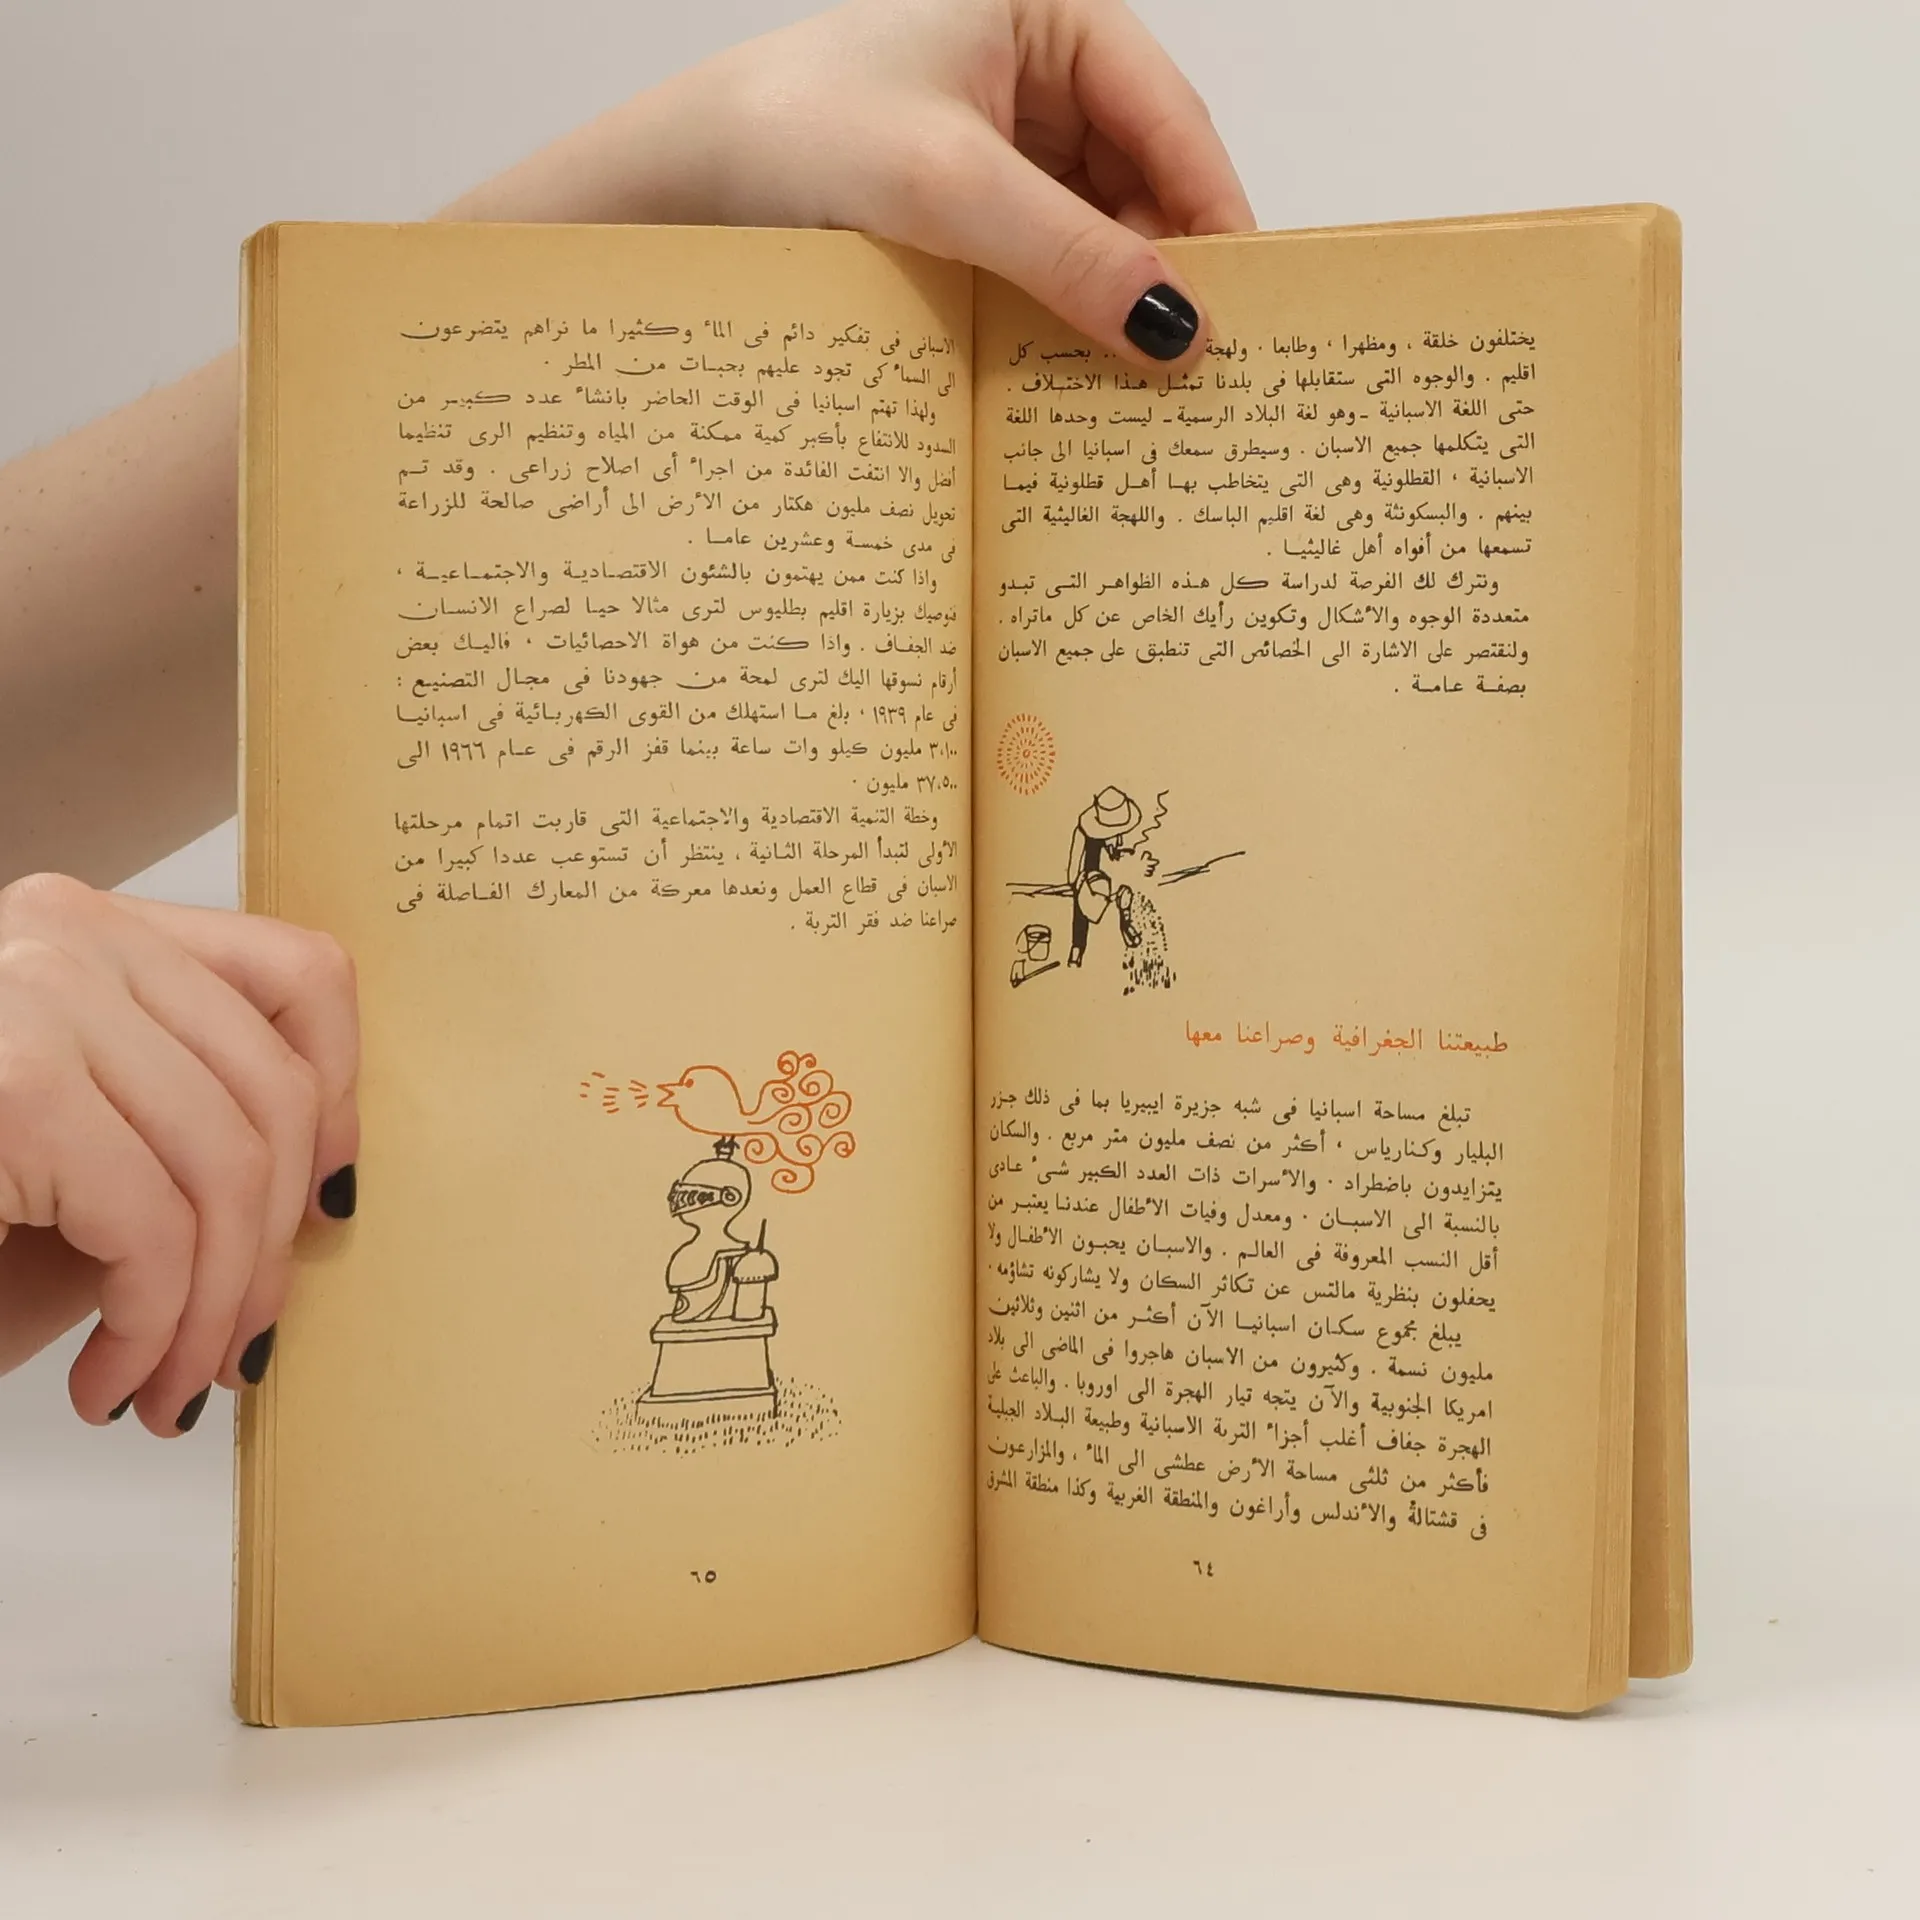 يختلفون خلقة ، ومظهرا ، وطابعا . ولهجة .. بحسب كل
اقليم . والوجوه التى ستقابلها فى بلدنا تمثـل هـذا الاختـلاف .
حتى اللغة الاسبانية ـ وهو لغة البلاد الرسمية ـ ليست وحدها اللغة
التى يتكلمها جميع الاسبان . وسيطرق سمعك فى اسبانيا الى جانب
الاسبانية ، القطلونية وهى التى يتخاطب بهـا أهـل قطلونية فيمـا
بينهم . والبسكونثة وهى لغة اقليم الباسك . واللهجة الغاليثية التى
تسمعها من أفواه أهل غاليثيـا .
ونترك لك الفرصة لدراسة كل هـذه الظواهـر التـى تبـدو
متعددة الوجوه والأشكال وتكوين رأيك الخاص عن كل ماتراه .
ولنقتصر على الاشارة الى الخصائص التى تنطبق على جميع الاسبان
بصفـة عامـة .
طبيعتنا الجغرافية وصراعنا معها
تبلغ مساحة اسبانيا فى شبه جزيرة ايبيريا بما فى ذلك جزر
البليار وكنارياس ، أكثر من نصف مليون متر مربع . والسكان
يتزايدون باضطراد . والأسرات ذات العدد الكبير شـىء عـادى
بالنسبة الى الاسبـان . ومعدل وفيات الأطفال عندنـا يعتبـر من
أقل النسب المعروفة فى العالـم . والاسبـان يحبـون الأطفـال ولا
يحفلون بنظرية مالتس عن تكاثر السكان ولا يشاركونه تشاؤمه .
يبلغ مجموع سكـان اسبانيـا الآن أكثـر من اثنين وثلاثين
مليون نسمة . وكثيرون من الاسبان هاجروا فى الماضى الى بلاد
امريكا الجنوبية والآن يتجه تيار الهجرة الى اوروبا . والباعث على
الهجرة جفاف أغلب أجزاء التربة الاسبانية وطبيعة البـلاد الجبلية
فأكثر من ثلثى مساحة الأرض عطشى الى الماء ، والمزارعون
فى قشتالة والأندلس وأراغون والمنطقة الغربية وكذا منطقة المشرق
٦٤
الاسبانى فى تفكير دائم فى الماء وكثيرا ما نراهم يتضرعون
الى السماء كى تجود عليهم بحبـات من المطر .
ولهذا تهتم اسبانيا فى الوقت الحاضر بانشاء عدد كبيـر من
السدود للانتفاع بأكبر كمية ممكنة من المياه وتنظيم الرى تنظيما
أفضل والا انتفت الفائدة من اجراء أى اصلاح زراعى . وقد تـم
تحويل نصف مليون هكتار من الأرض الى أراضى صالحة للزراعة
فى مدى خمسـة وعشرين عامـا .
واذا كنت ممن يهتمون بالشئون الاقتصـاديـة والاجتمـاعيـة ،
فنوصيك بزيارة اقليم بطليوس لترى مثالا حيـا لصراع الانسـان
ضد الجفـاف . واذا كنت من هواة الاحصائيات ، فاليـك بعض
أرقام نسوقها اليك لترى لمحة من جهودنا فى مجـال التصنيـع :
فى عام ١٩٣٩ ، بلغ مـا استهلك من القوى الكهربـائية فى اسبانيـا
٣،١٠٠ مليون كيلو وات ساعة بينما قفز الرقم فى عـام ١٩٦٦ الى
٣٧،٥٠٠ مليون .
وخطة التنمية الاقتصادية والاجتماعية التى قاربت اتمام مرحلتها
الأولى لتبدأ المرحلة الثـانية ، ينتظر أن تستوعب عددا كبيرا من
الاسبان فى قطاع العمل ونعدها معركة من المعارك الفـاصلة فى
صراعنا ضد فقر التربة .
٦٥